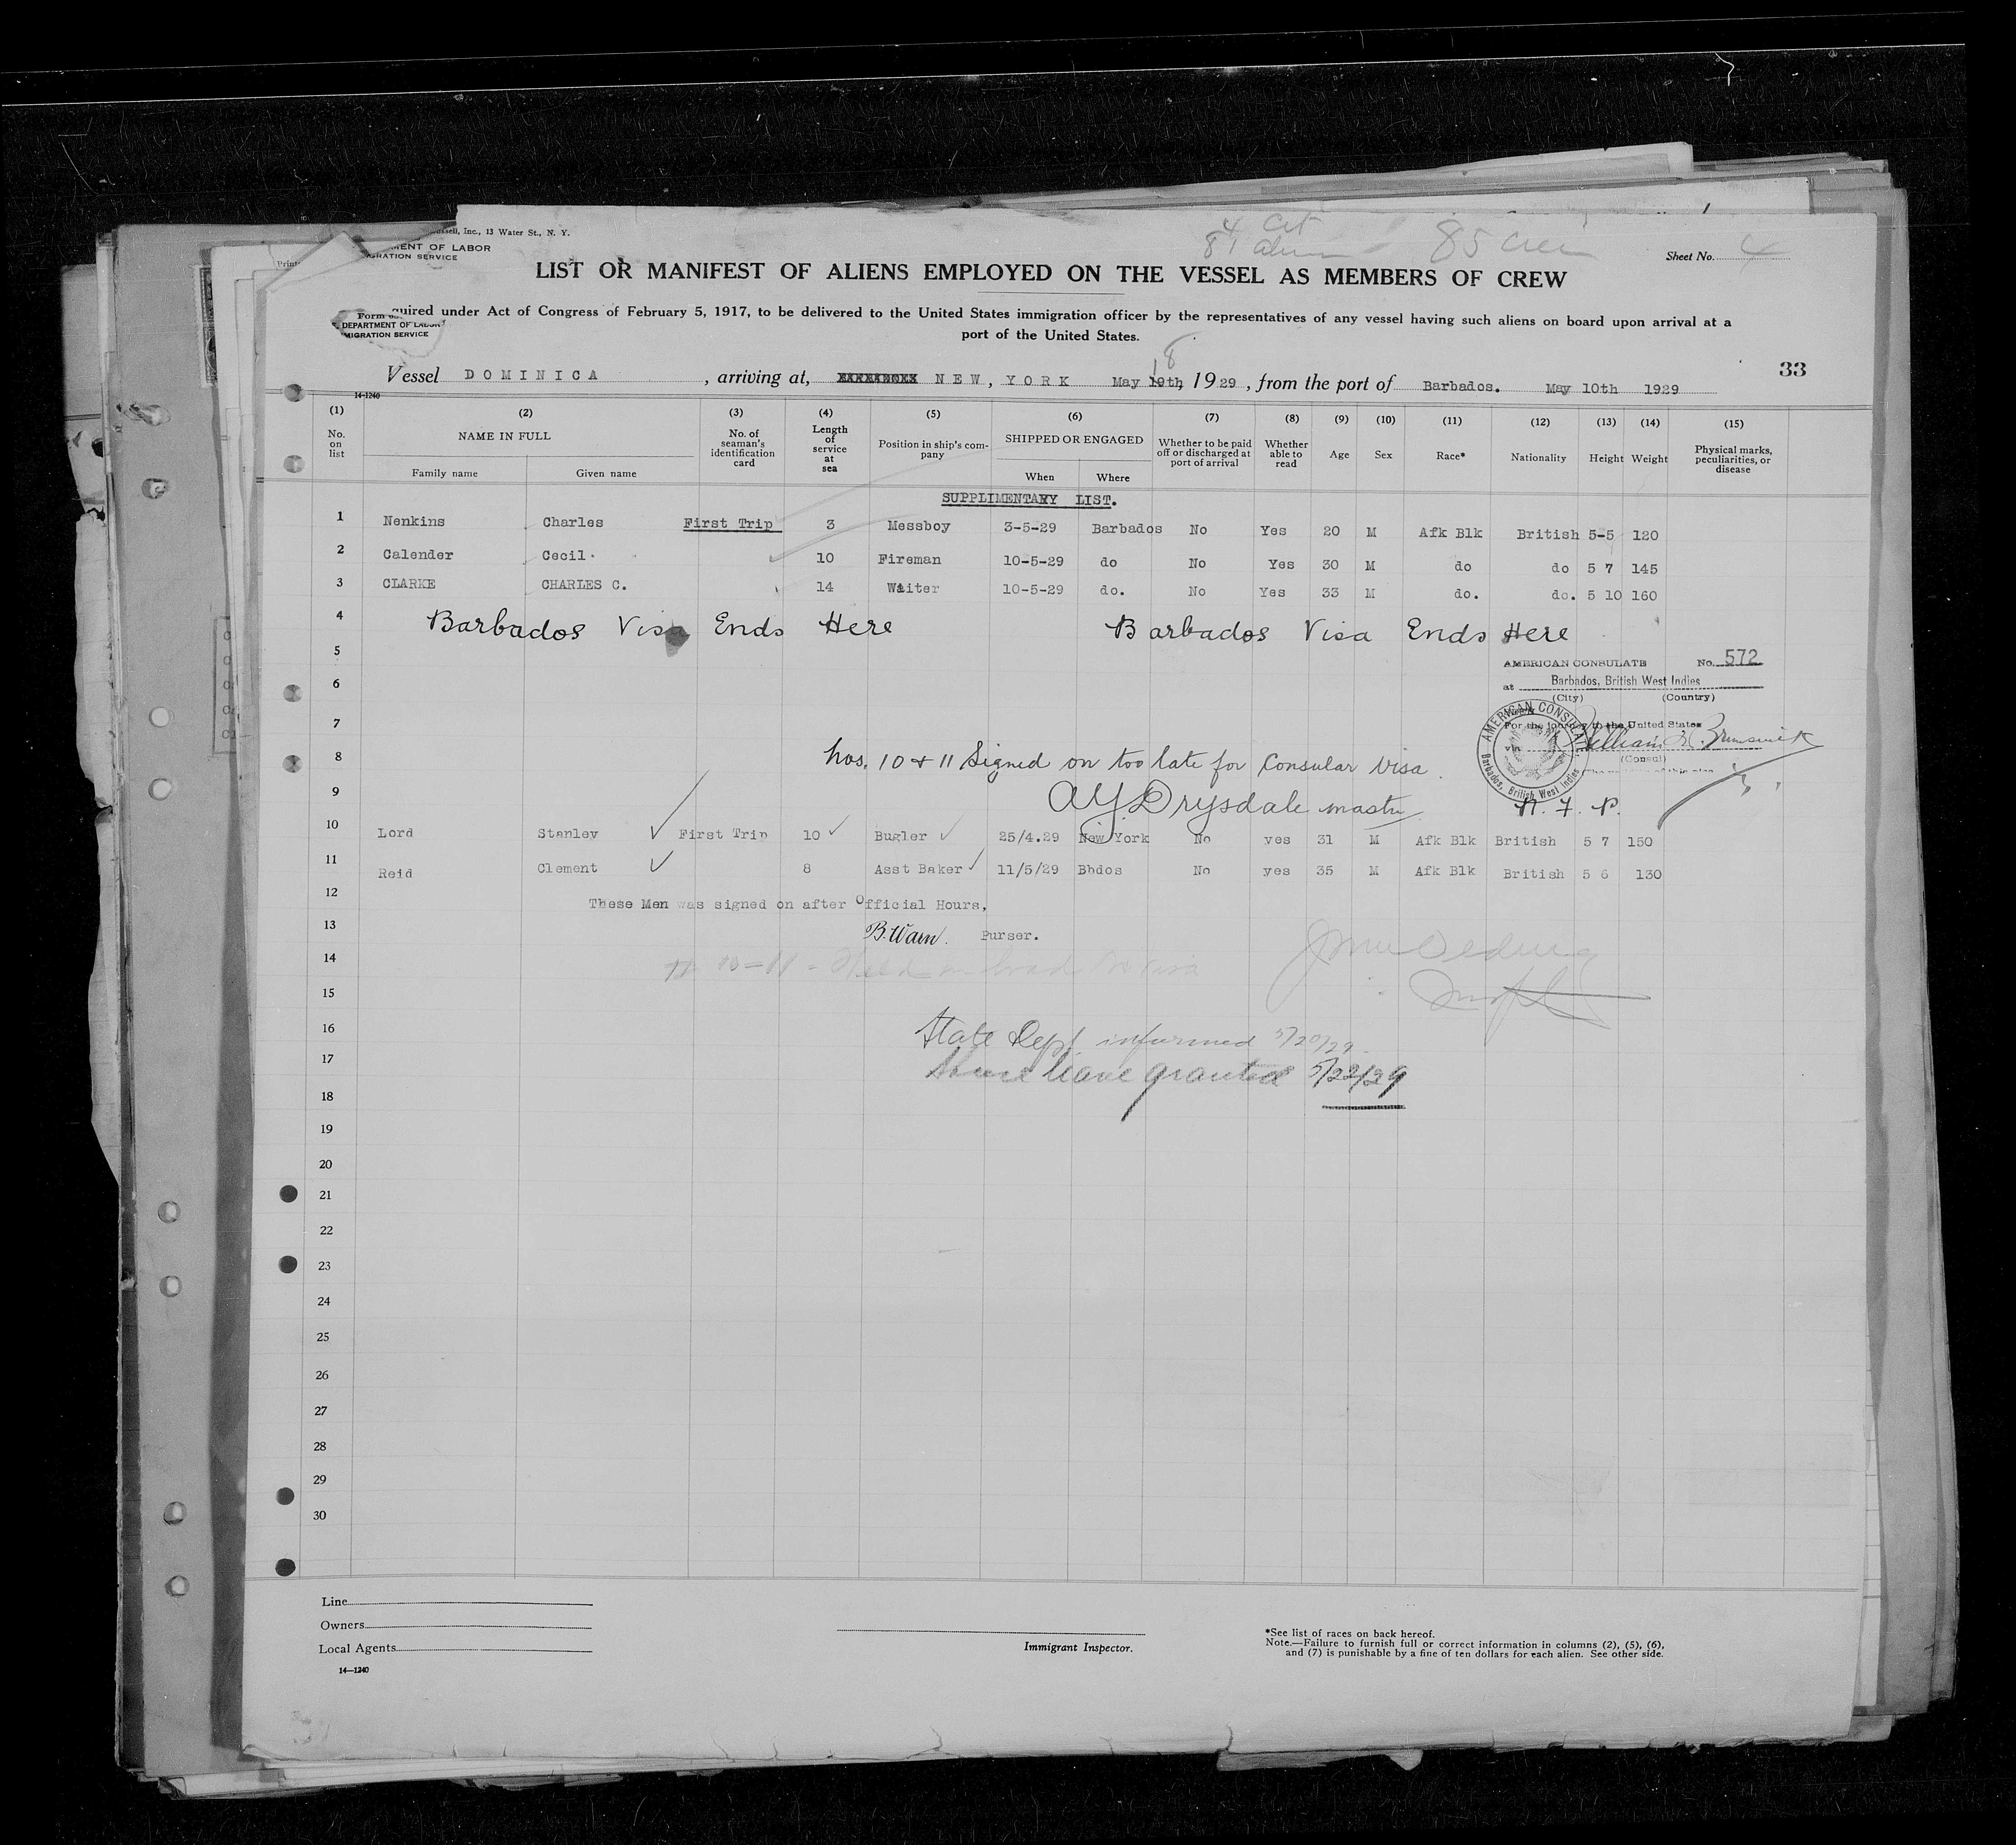 ssell, Inc., 13 Water St., N. Y.
MENT OF LABOR
GRATION SERVICE
Print
84
85 crew
Sheet No. 4
LIST OR MANIFEST OF ALIENS EMPLOYED ON THE VESSEL AS MEMBERS OF CREW
quired under Act of Congress of February 5, 1917, to be delivered to the United States immigration officer by the representatives of any vessel having such aliens on board upon arrival at a
port of the United States.
Form
DEPARTMENT OF LABOR
MIGRATION SERVICE
18
33
Vessel DOMINICA, arriving at, NEW, YORK May 19th, 1929, from the port of Barbados. May 10th 1929
14-1240
(1) (2) (3) (4) (5) (6) (7) (8) (9) (10) (11) (12) (13) (14) (15)
No. on list NAME IN FULL Family name Given name No. of seaman's identification card Length of service at sea Position in ship's company SHIPPED OR ENGAGED When Where Whether to be paid off or discharged at port of arrival Whether able to read Age Sex Race* Nationality Height Weight Physical marks, peculiarities, or disease
SUPPLIMENTARY LIST.
1 Nenkins Charles First Trip 3 Messboy 3-5-29 Barbados No Yes 20 M Afk Blk British 5-5 120
2 Calender Cecil 10 Fireman 10-5-29 do No Yes 30 M do do 5 7 145
3 CLARKE CHARLES C. 14 Waiter 10-5-29 do. No Yes 33 M do. do. 5 10 160
4 Barbados Visa Ends Here Barbados Visa Ends Here
5
AMERICAN CONSULATE No. 572
at Barbados, British West Indies
(City) (Country)
6
7
For the journey to the United States
via
(Consul)
AMERICAN CONSULATE
Barbados, British West Indies
8 Nos. 10 & 11 Signed on too late for Consular Visa.
9 A Y Drysdale master
N. F. P.
10 Lord Stanley First Trip 10 Bugler 25/4.29 New York No yes 31 M Afk Blk British 5 7 150
11 Reid Clement 8 Asst Baker 11/5/29 Bbdos No yes 35 M Afk Blk British 5 6 130
12 These Men was signed on after Official Hours,
13 B. Warn. Purser.
14
15
16 State Dept. informed 5/20/29
17 Shore leave granted 5/22/29
18
19
20
21
22
23
24
25
26
27
28
29
30
Line
Owners
Local Agents
14—1240
Immigrant Inspector.
*See list of races on back hereof.
Note.—Failure to furnish full or correct information in columns (2), (5), (6),
and (7) is punishable by a fine of ten dollars for each alien. See other side.